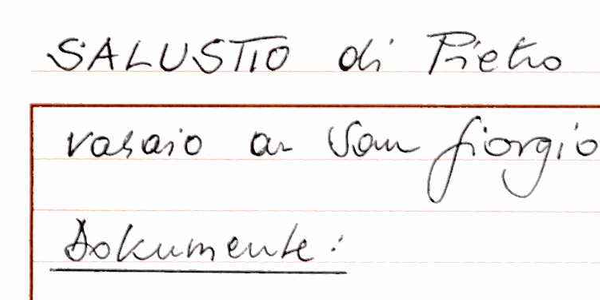 SALUSTIO di Pietro
vasaio a San Giorgio
Dokumente: